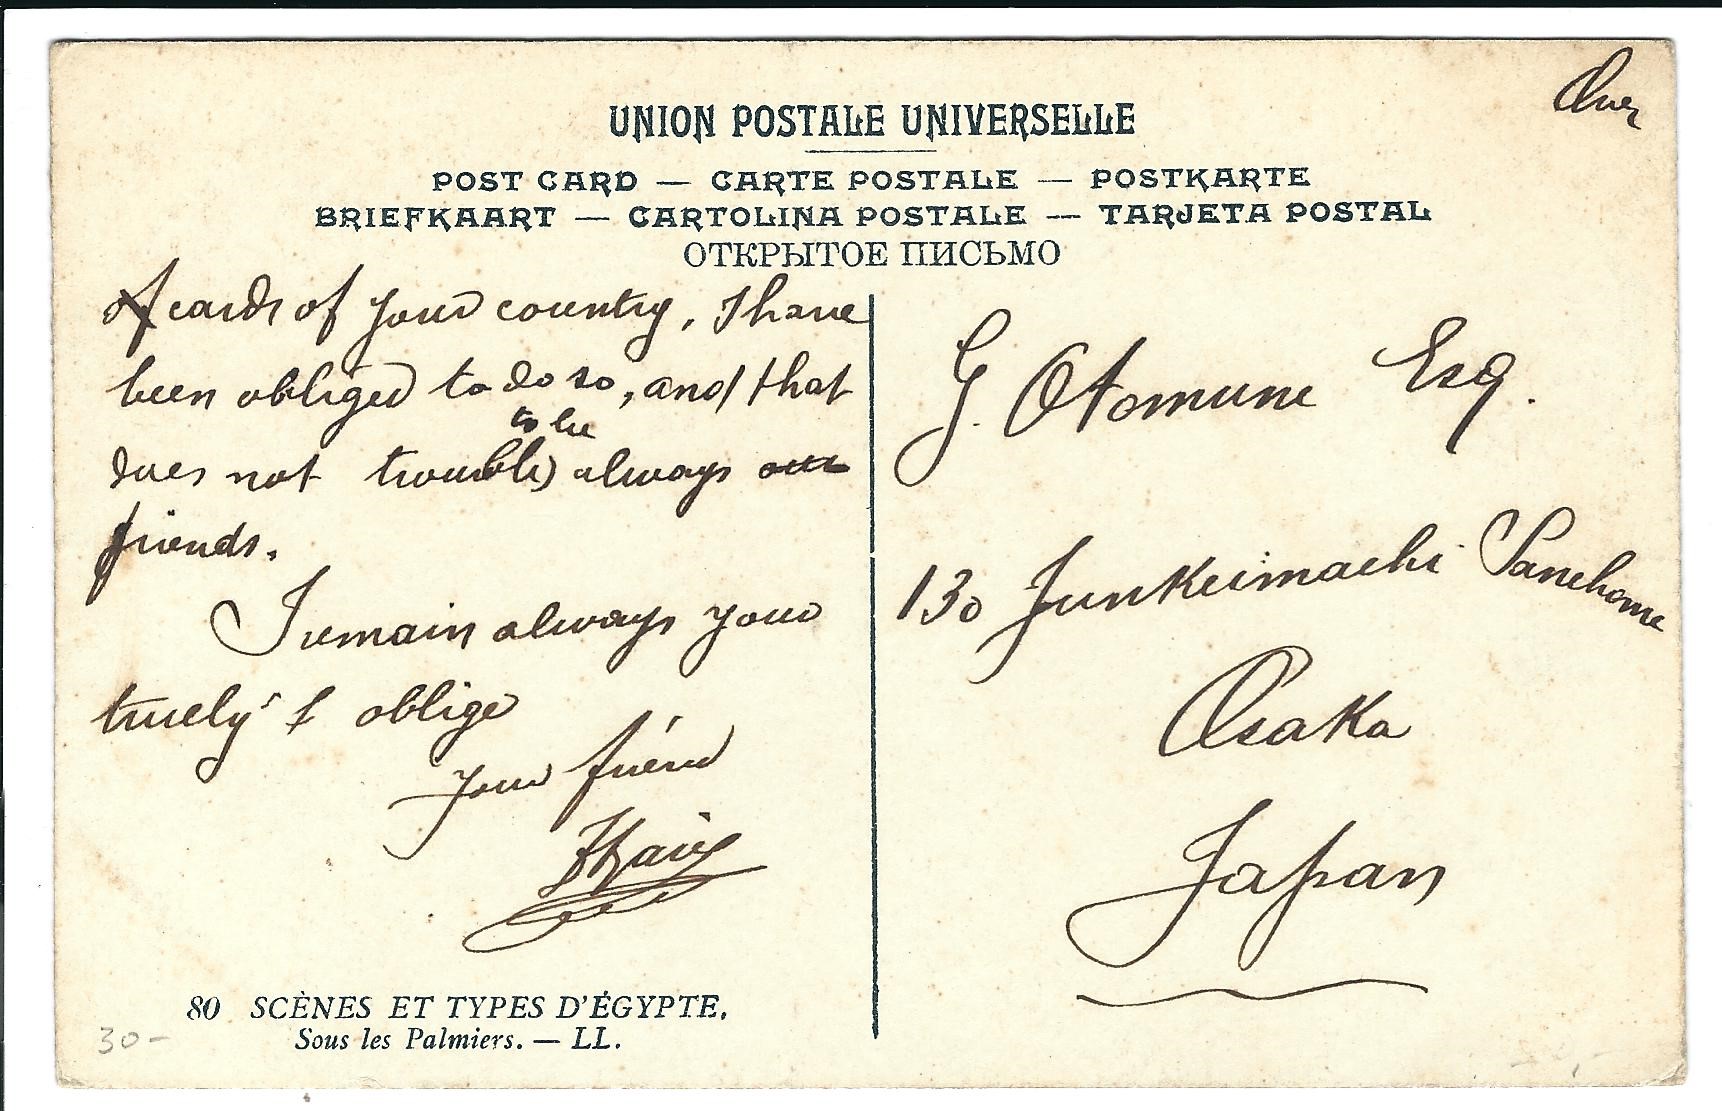 Over
UNION POSTALE UNIVERSELLE
POST CARD — CARTE POSTALE — POSTKARTE
BRIEFKAART — CARTOLINA POSTALE — TARJETA POSTAL
ОТКРЫТОЕ ПИСЬМО
of cards of your country, I have
been obliged to do so, and that
to be
does not trouble always our
friends.
I remain always your
truely & oblige
your friend
G. Otomune Esq.
130 Junkeimachi Sanchome
Osaka
Japan
80 SCÈNES ET TYPES D'ÉGYPTE.
Sous les Palmiers. — LL.
30-